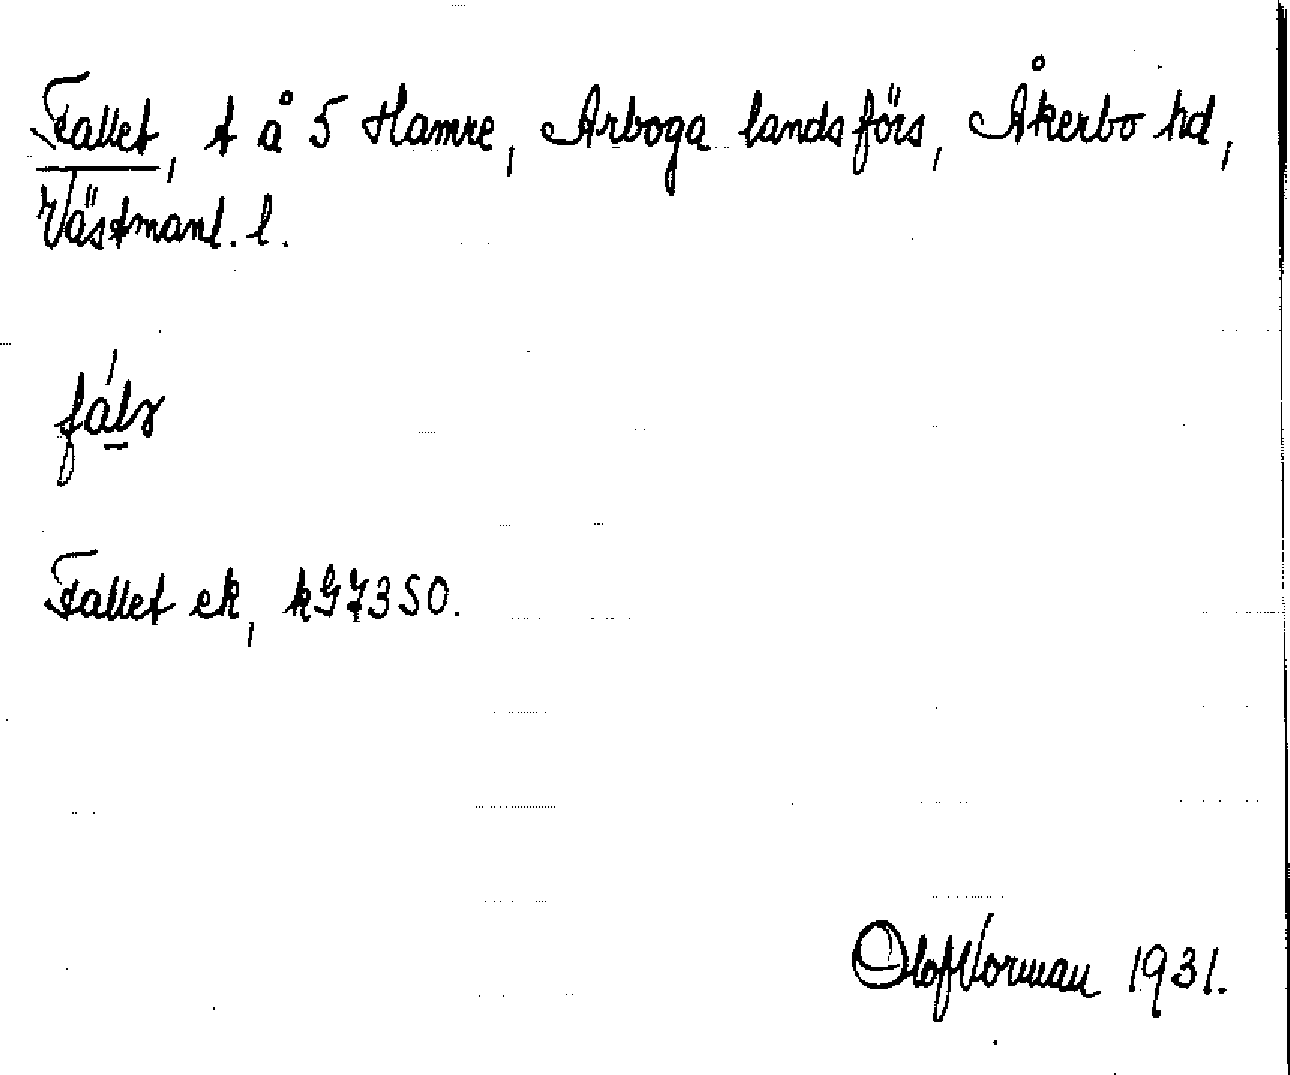 Fallet, t å 5 Hamre, Arboga landsförs, Åkerbo hd,
Västmanl. l.
Fallet ek, kG7350.
Olof Vorman 1931.